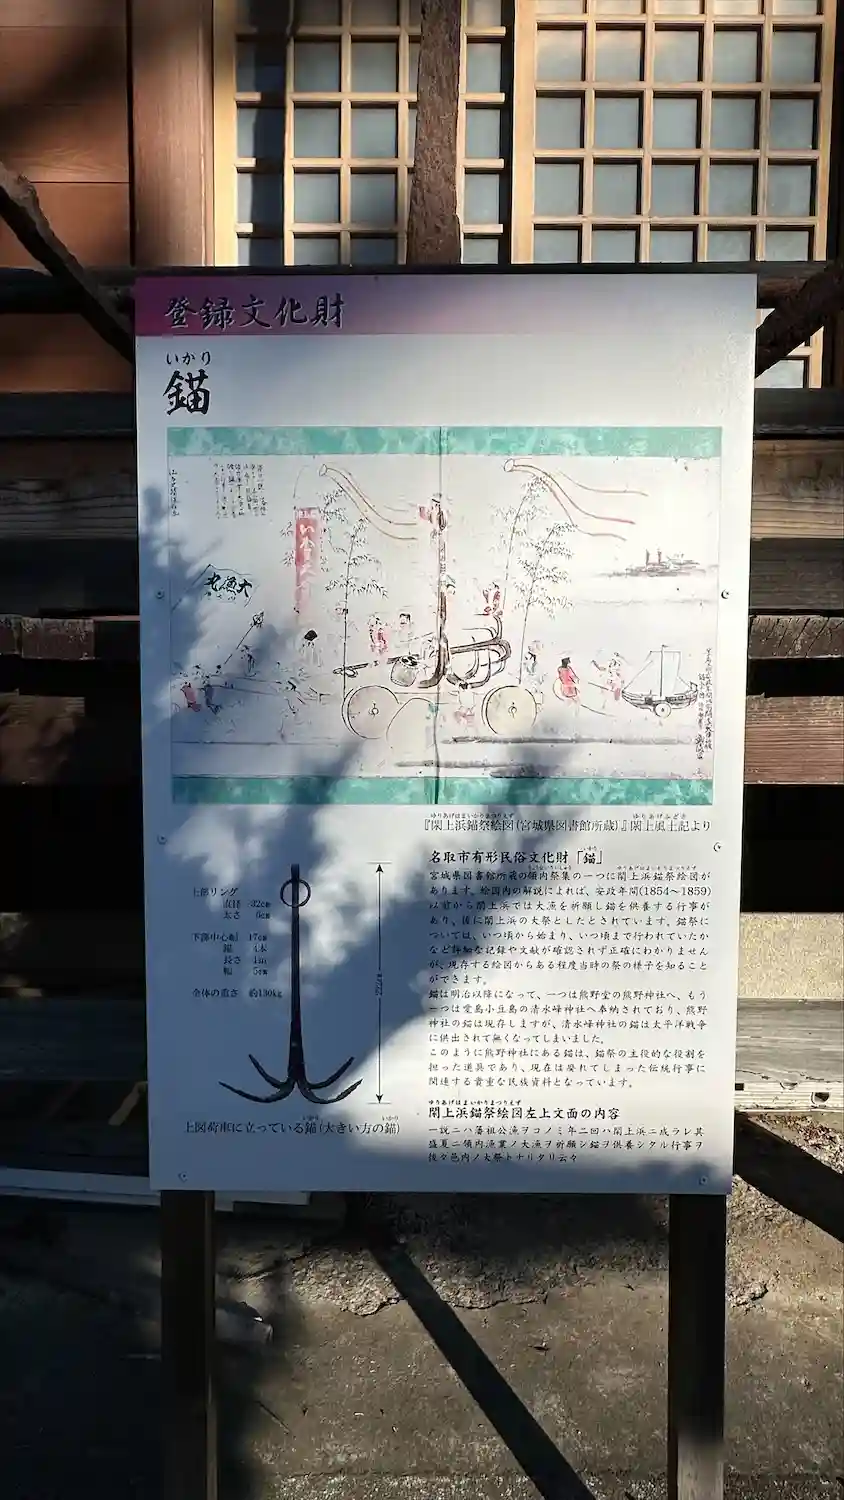 登録文化財
いかり
錨
大漁丸
ゆりあげはまいかりまつりえず
ゆりあげふどき
『閖上浜錨祭絵図(宮城県図書館所蔵)』閖上風土記より
上部リング
直径 32cm
太さ 6cm
下部中心軸 17cm
錨 4本
長さ 1m
幅 5cm
全体の重さ 約130kg
いかり
いかり
上図荷車に立っている錨(大きい方の錨)
いかり
名取市有形民俗文化財「錨」
ゆりあげはまいかりまつりえず
宮城県図書館所蔵の領内祭集の一つに閖上浜錨祭絵図が
あります。絵図内の解説によれば、安政年間(1854〜1859)
以前から閖上浜では大漁を祈願し錨を供養する行事が
あり、後に閖上浜の大祭としたとされています。錨祭に
ついては、いつ頃から始まり、いつ頃まで行われていたか
など詳細な記録や文献が確認されず正確にわかりません
が、現存する絵図からある程度当時の祭の様子を知ること
ができます。
錨は明治以降になって、一つは熊野堂の熊野神社へ、もう
一つは愛島小豆島の清水峰神社へ奉納されており、熊野
神社の錨は現存しますが、清水峰神社の錨は太平洋戦争
に供出されて無くなってしまいました。
このように熊野神社にある錨は、錨祭の主役的な役割を
担った道具であり、現在は廃れてしまった伝統行事に
関連する貴重な民族資料となっています。
ゆりあげはまいかりまつりえず
閖上浜錨祭絵図左上文面の内容
一説ニハ藩祖公漁ヲコノミ年二回ハ閖上浜ニ成ラレ其
盛夏ニ領内漁業ノ大漁ヲ祈願シ錨ヲ供養シタル行事ヲ
後々邑内ノ大祭トナリタリ云々